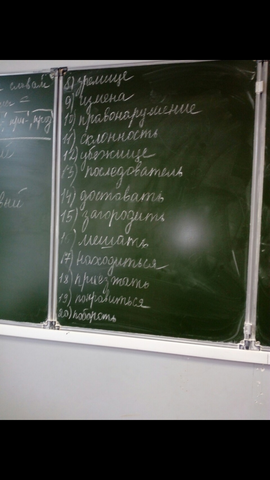 словам
8) зрелище
9) измена
10) правонарушение
11) склонность
12) убежище
13) последователь
14) доставать
15) загородить
мешать
17) находиться
18) приезжать
19) понравиться
20) побороть